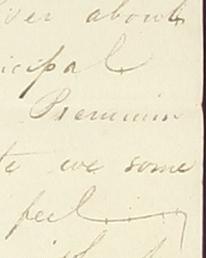 iver about
icipal
Premium
te we some
feel